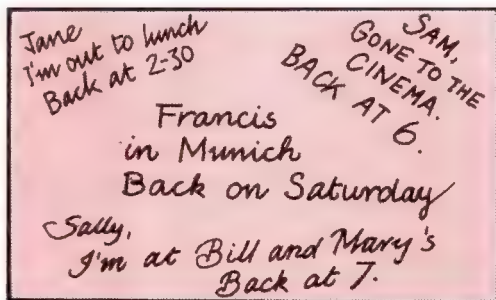 Jane
I'm out to lunch
Back at 2-30
SAM,
GONE TO THE
CINEMA.
BACK AT 6.
Francis
in Munich
Back on Saturday
Sally,
I'm at Bill and Mary's
Back at 7.